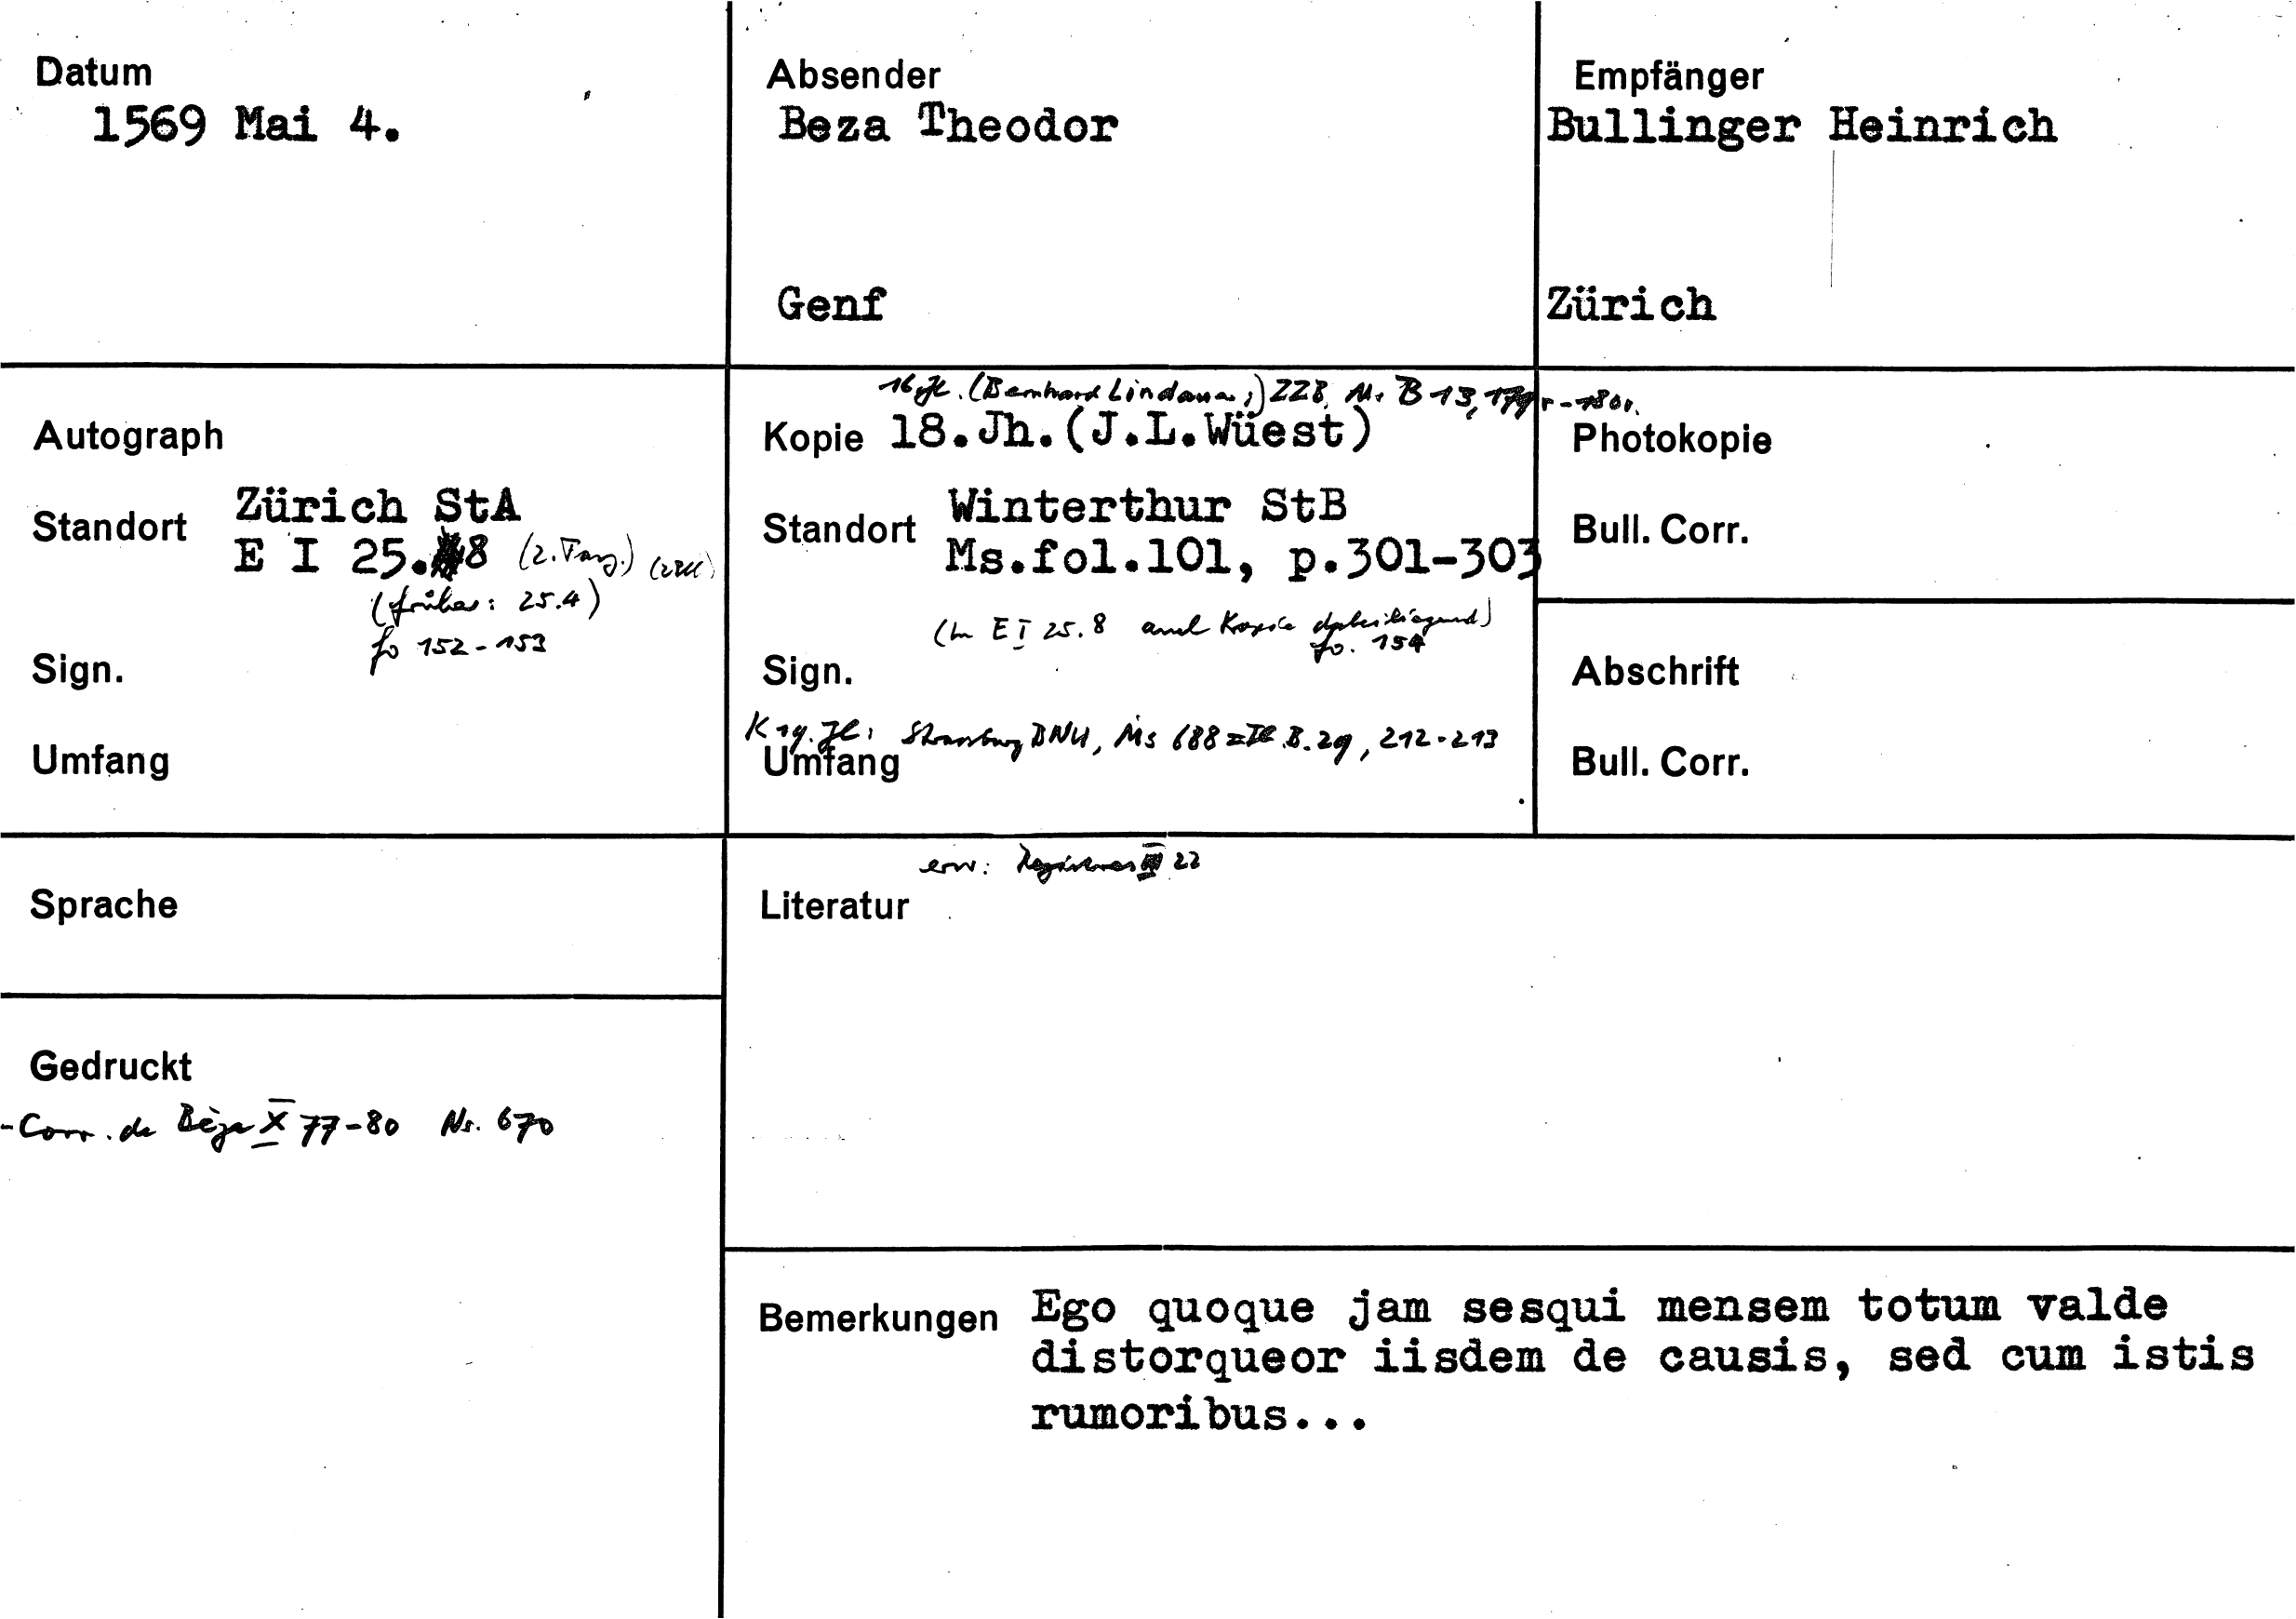 Datum
1569 Mai 4.
Absender
Beza Theodor
Genf
Empfänger
Bullinger Heinrich
Zürich
Autograph
Standort Zürich StA
E I 25.8 (2. )
(früher: 25.4)
fo 152-153
Sign.
Umfang
16. Jh. (Bernhard Lindauer;) ZZB, Ms B 13, 179r-180r.
Kopie 18.Jh.(J.L.Wüest)
Standort Winterthur StB
Ms.fol.101, p.301-303
(In E I 25.8 auch Kopie dabeiliegend)
fo. 154
Sign.
K 19. Jh: Strassburg BNU, Ms 688 = 212-213
Umfang
Photokopie
Bull. Corr.
Abschrift
Bull. Corr.
Sprache
erw: Registres 22
Literatur
Gedruckt
-Corr. de Bèze X 77-80 Nr. 670
Bemerkungen Ego quoque jam sesqui mensem totum valde
distorqueor iisdem de causis, sed cum istis
rumoribus...